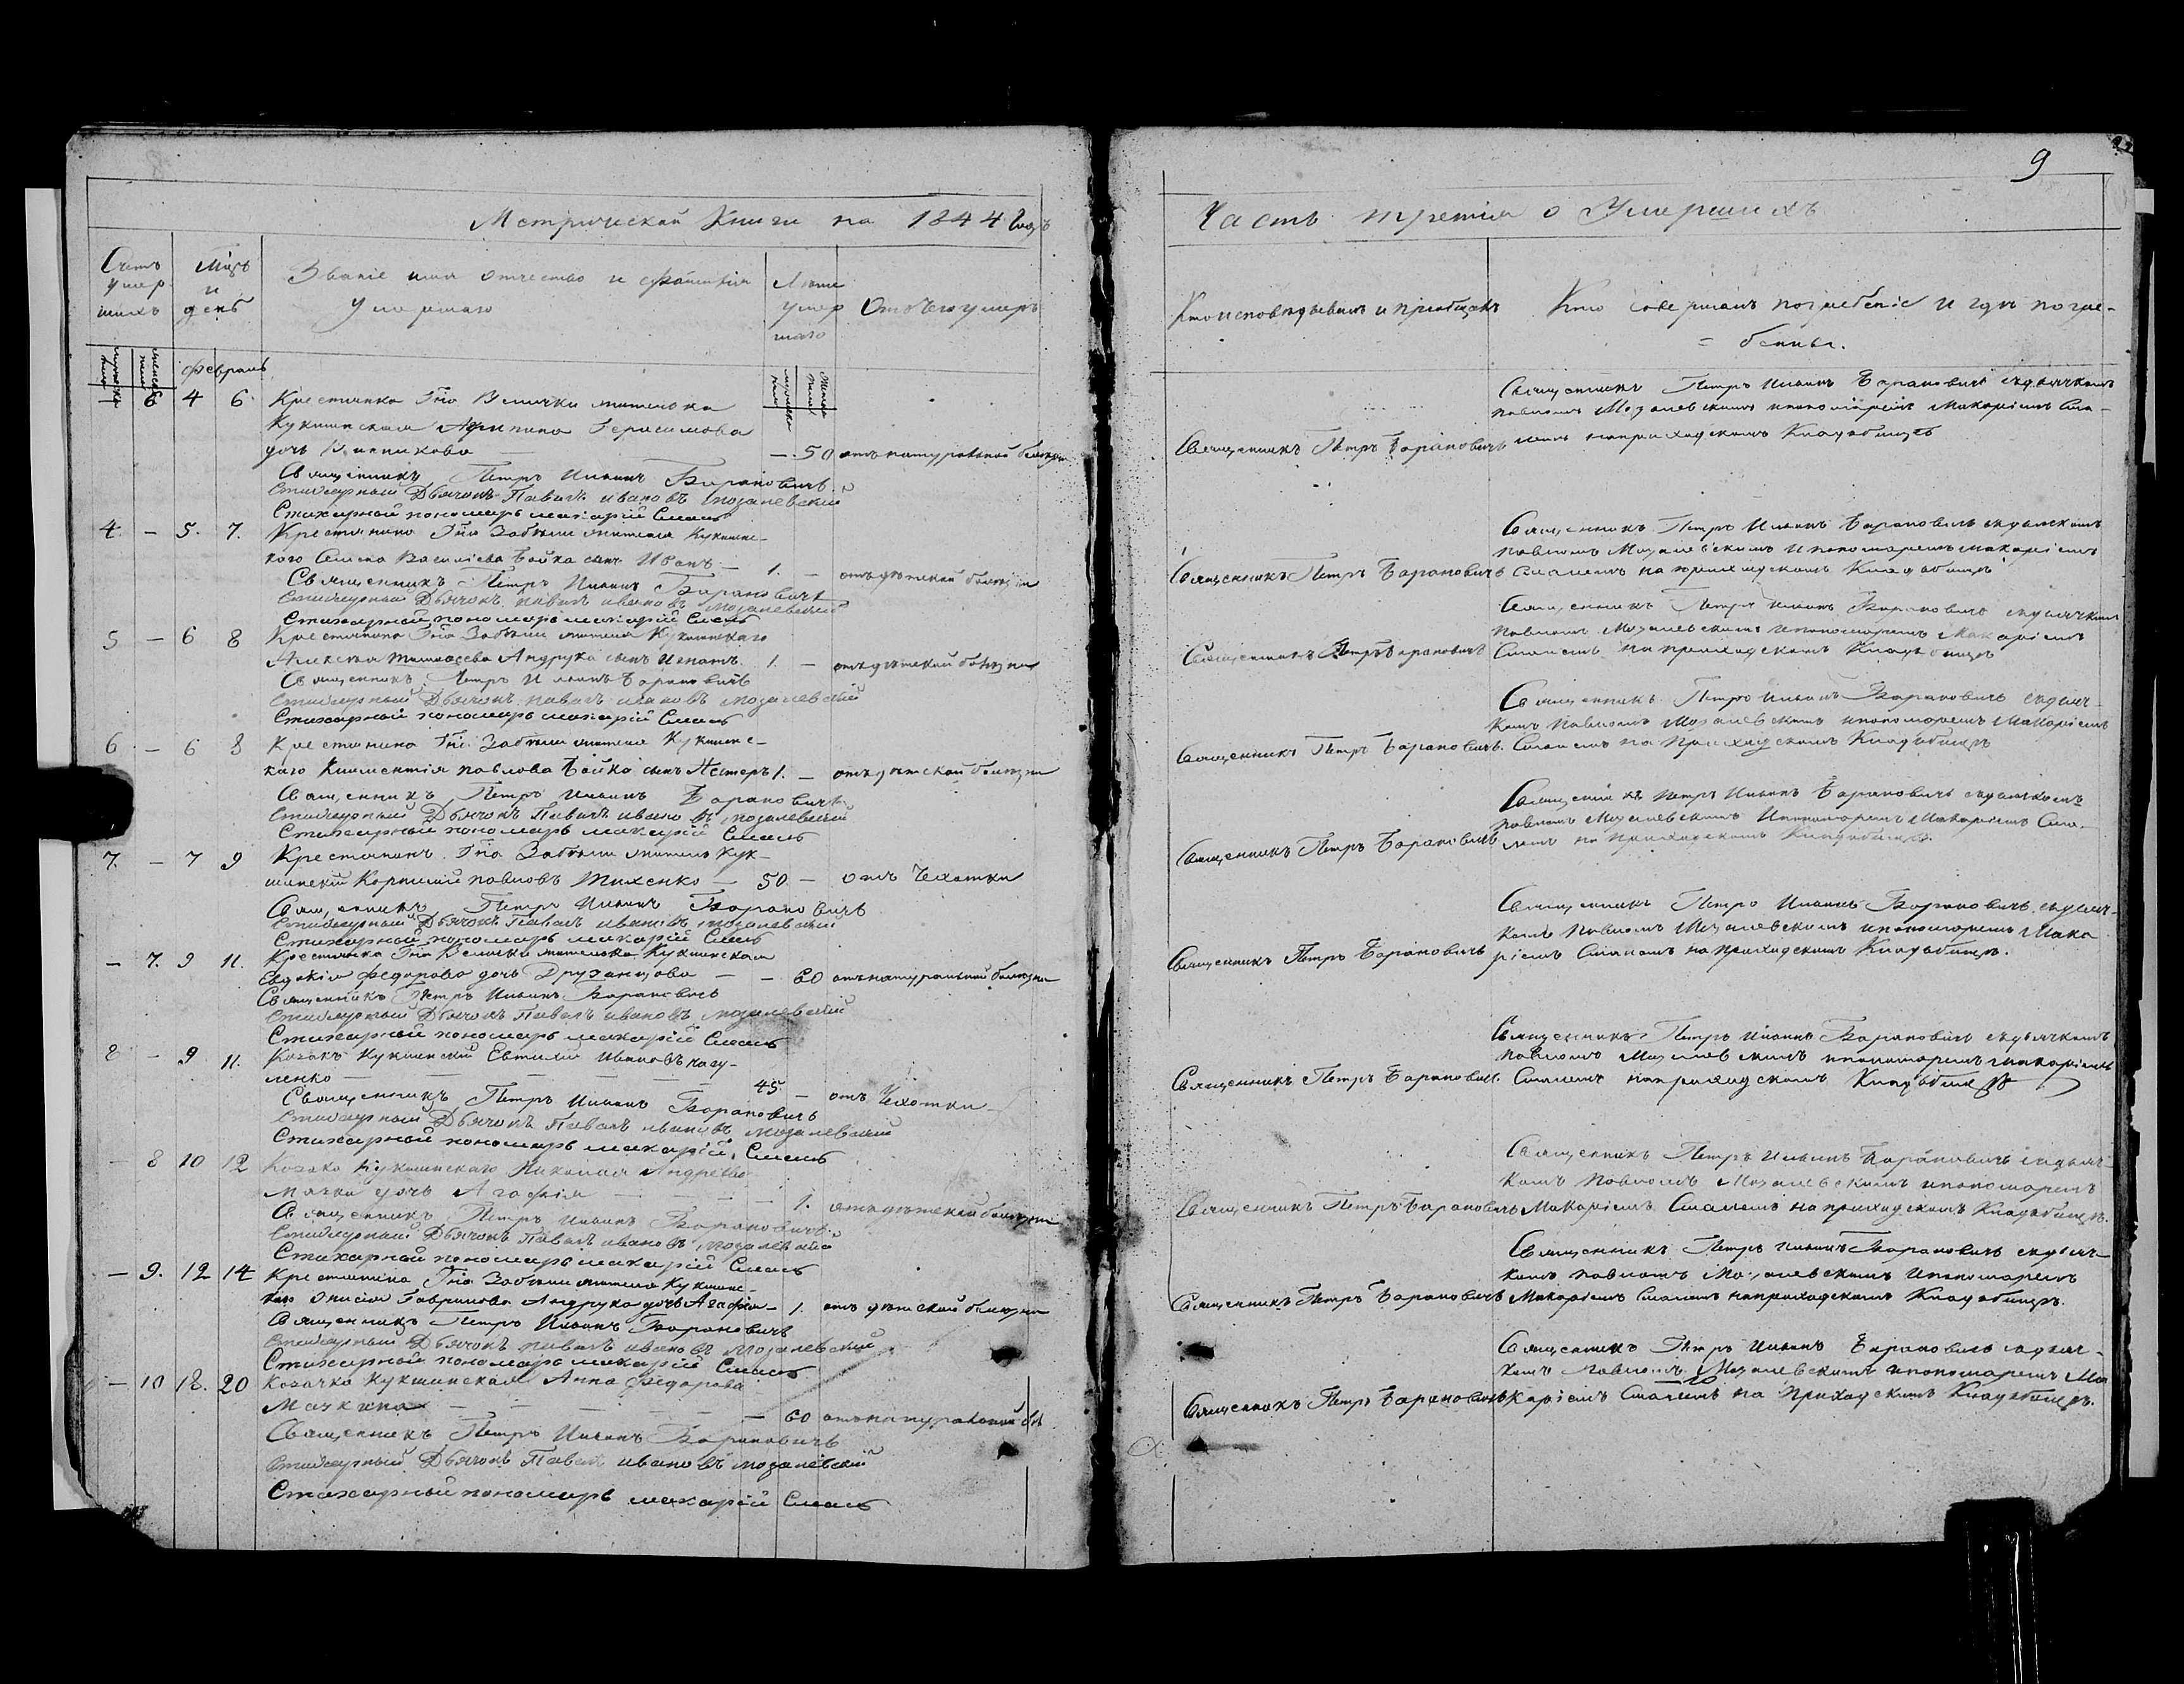 9
Метрической Книги на 1844 Годъ
Часть третія о Умершихъ
Счетъ умер шихъ
Мцъ и день
Званіе имя отчество и фамилія Умершаго
Лѣта умер шаго
Отъ чего умеръ
Кто исповѣдывалъ и пріобщалъ
Кто совершалъ погребеніе и гдѣ погре-
бены.
февраль
— 6 4 6. Крестьянка Гна Велички жителька
Кукшинская Агрипина Герасимова
дочь — 50 отъ натуральной болѣзни
Священникъ Петръ Иоаннъ Барановичъ
Стихарный Дьячокъ Павелъ ивановъ мозалевский
Стихарный пономарь макарій Смаль
Священникъ Петръ Барановичъ
Священникъ Петръ Иоаннъ Барановичъ съ дьячкомъ
павломъ Мозалевскимъ и пономаремъ Макаріемъ Сма-
лемъ на приходскомъ Кладбищѣ
4. — 5. 7. Крестьянина Гна Забѣлы жителя Кукшинс-
кого Семена Василіева Бойка сынъ Иванъ — 1. — отъ дѣтской болѣзни
Священникъ Петръ Иоаннъ Барановичъ
Стихарный Дьячокъ павелъ ивановъ мозалевский
Стихарный пономарь макарій Смаль
Священникъ Петръ Барановичъ
Священникъ Петръ Иоаннъ Барановичъ съ дьячкомъ
павломъ Мозалевскимъ и пономаремъ макаріемъ
Смалемъ на приходскомъ Кладбищѣ
5 — 6 8 Крестьянина Гна Забѣлы жителя Кукшинскаго
Алексѣя Тимофѣева Андруха сынъ Игнатъ. 1. — отъ дѣтской болѣзни
Священникъ Петръ Иоаннъ Барановичъ
Стихарный Дьячокъ павелъ ивановъ мозалевский
Стихарный пономарь макарій Смаль
Священникъ Петръ Барановичъ
Священникъ Петръ Иоаннъ Барановичъ съ дьячкомъ
павломъ Мозалевскимъ и пономаремъ Макаріемъ
Смалемъ на приходскомъ Кладбищѣ
6 — 6 8 Крестьянина Гна Забѣлы жителя Кукшинс-
каго Климентія павлова Бойка сынъ Нестеръ 1. — отъ дѣтской болѣзни
Священникъ Петръ Иоаннъ Барановичъ
Стихарный Дьячокъ Павелъ ивановъ мозалевский
Стихарный пономарь макарій Смаль
Священникъ Петръ Барановичъ.
Священникъ Петръ Иоаннъ Барановичъ съ дьяч-
комъ павломъ Мозалевскимъ и пономаремъ Макаріемъ
Смалемъ на Приходскомъ Кладбищѣ
7. — 7 9 Крестьянинъ Гна Забѣлы житель Кук-
шинскій Корнилій павловъ Тихенко — 50 — отъ Чехотки
Священникъ Петръ Иоаннъ Барановичъ
Стихарный Дьячокъ Павелъ ивановъ мозалевский
Стихарный пономарь макарій Смаль
Священникъ Петръ Барановичъ
Священникъ Петръ Иоаннъ Барановичъ съ дьячкомъ
павломъ Мозалевскимъ и пономаремъ Макаріемъ Сма-
лемъ на Приходскомъ Кладбищѣ
— 7. 9 11. Крестьянка Гна Велички жителька Кукшинская
Евдокія Федорова дочь — — 60 отъ натуральной болѣзни
Священникъ Петръ Иоаннъ Барановичъ
Стихарный Дьячокъ Павелъ ивановъ мозалевский
Стихарный пономарь макарій Смаль
Священникъ Петръ Барановичъ
Священникъ Петръ Иоаннъ Барановичъ съ дьяч-
комъ Павломъ Мозалевскимъ и пономаремъ Мака
ріемъ Смалемъ на приходскомъ Кладбищѣ.
8 — 9 11. Козакъ Кукшинскій Евтихій Ивановъ
ленко — 45 — отъ Чехотки
Священникъ Петръ Иоаннъ Барановичъ
Стихарный Дьячокъ Павелъ ивановъ мозалевский
Стихарный пономарь макарій Смаль
Священникъ Петръ Барановичъ.
Священникъ Петръ Иоаннъ Барановичъ съ дьячкомъ
павломъ Мозалевскимъ и пономаремъ макаріемъ
Смалемъ на приходскомъ Кладбищѣ
— 8 10 12 Козака Кукшинскаго Николая Андреева
Мачки дочь Агафія — 1. отъ дѣтской болѣзни
Священникъ Петръ Иоаннъ Барановичъ
Стихарный Дьячокъ Павелъ ивановъ мозалевский
Стихарный пономарь макарій Смаль
Священникъ Петръ Барановичъ
Священникъ Петръ Иоаннъ Барановичъ съ дьяч-
комъ Павломъ Мозалевскимъ и пономаремъ
Макаріемъ Смалемъ на приходскомъ Кладбищѣ.
— 9. 12 14 Крестьянина Гна Забѣлы жителя Кукшинс-
каго Онисія Гаврилова Андруха дочь Агафія — 1. отъ дѣтской болѣзни
Священникъ Петръ Иоаннъ Барановичъ
Стихарный Дьячокъ павелъ ивановъ мозалевский
Стихарный пономарь макарій Смаль
Священникъ Петръ Барановичъ
Священникъ Петръ Иоаннъ Барановичъ съ дьяч-
комъ павломъ Мозалевскимъ и пономаремъ
Макаріемъ Смалемъ на приходскомъ Кладбищѣ.
— 10 18. 20 Козачка Кукшинская Анна Федорова
Мачкина — — 60 отъ натуральной бол
Священникъ Петръ Иоаннъ Барановичъ
Стихарный Дьячокъ Павелъ ивановъ мозалевский
Стихарный пономарь макарій Смаль
Священникъ Петръ Барановичъ
Священникъ Петръ Иоаннъ Барановичъ съ дьяч-
комъ павломъ Мозалевскимъ и пономаремъ Ма
каріемъ Смалемъ на Приходскомъ Кладбищѣ.